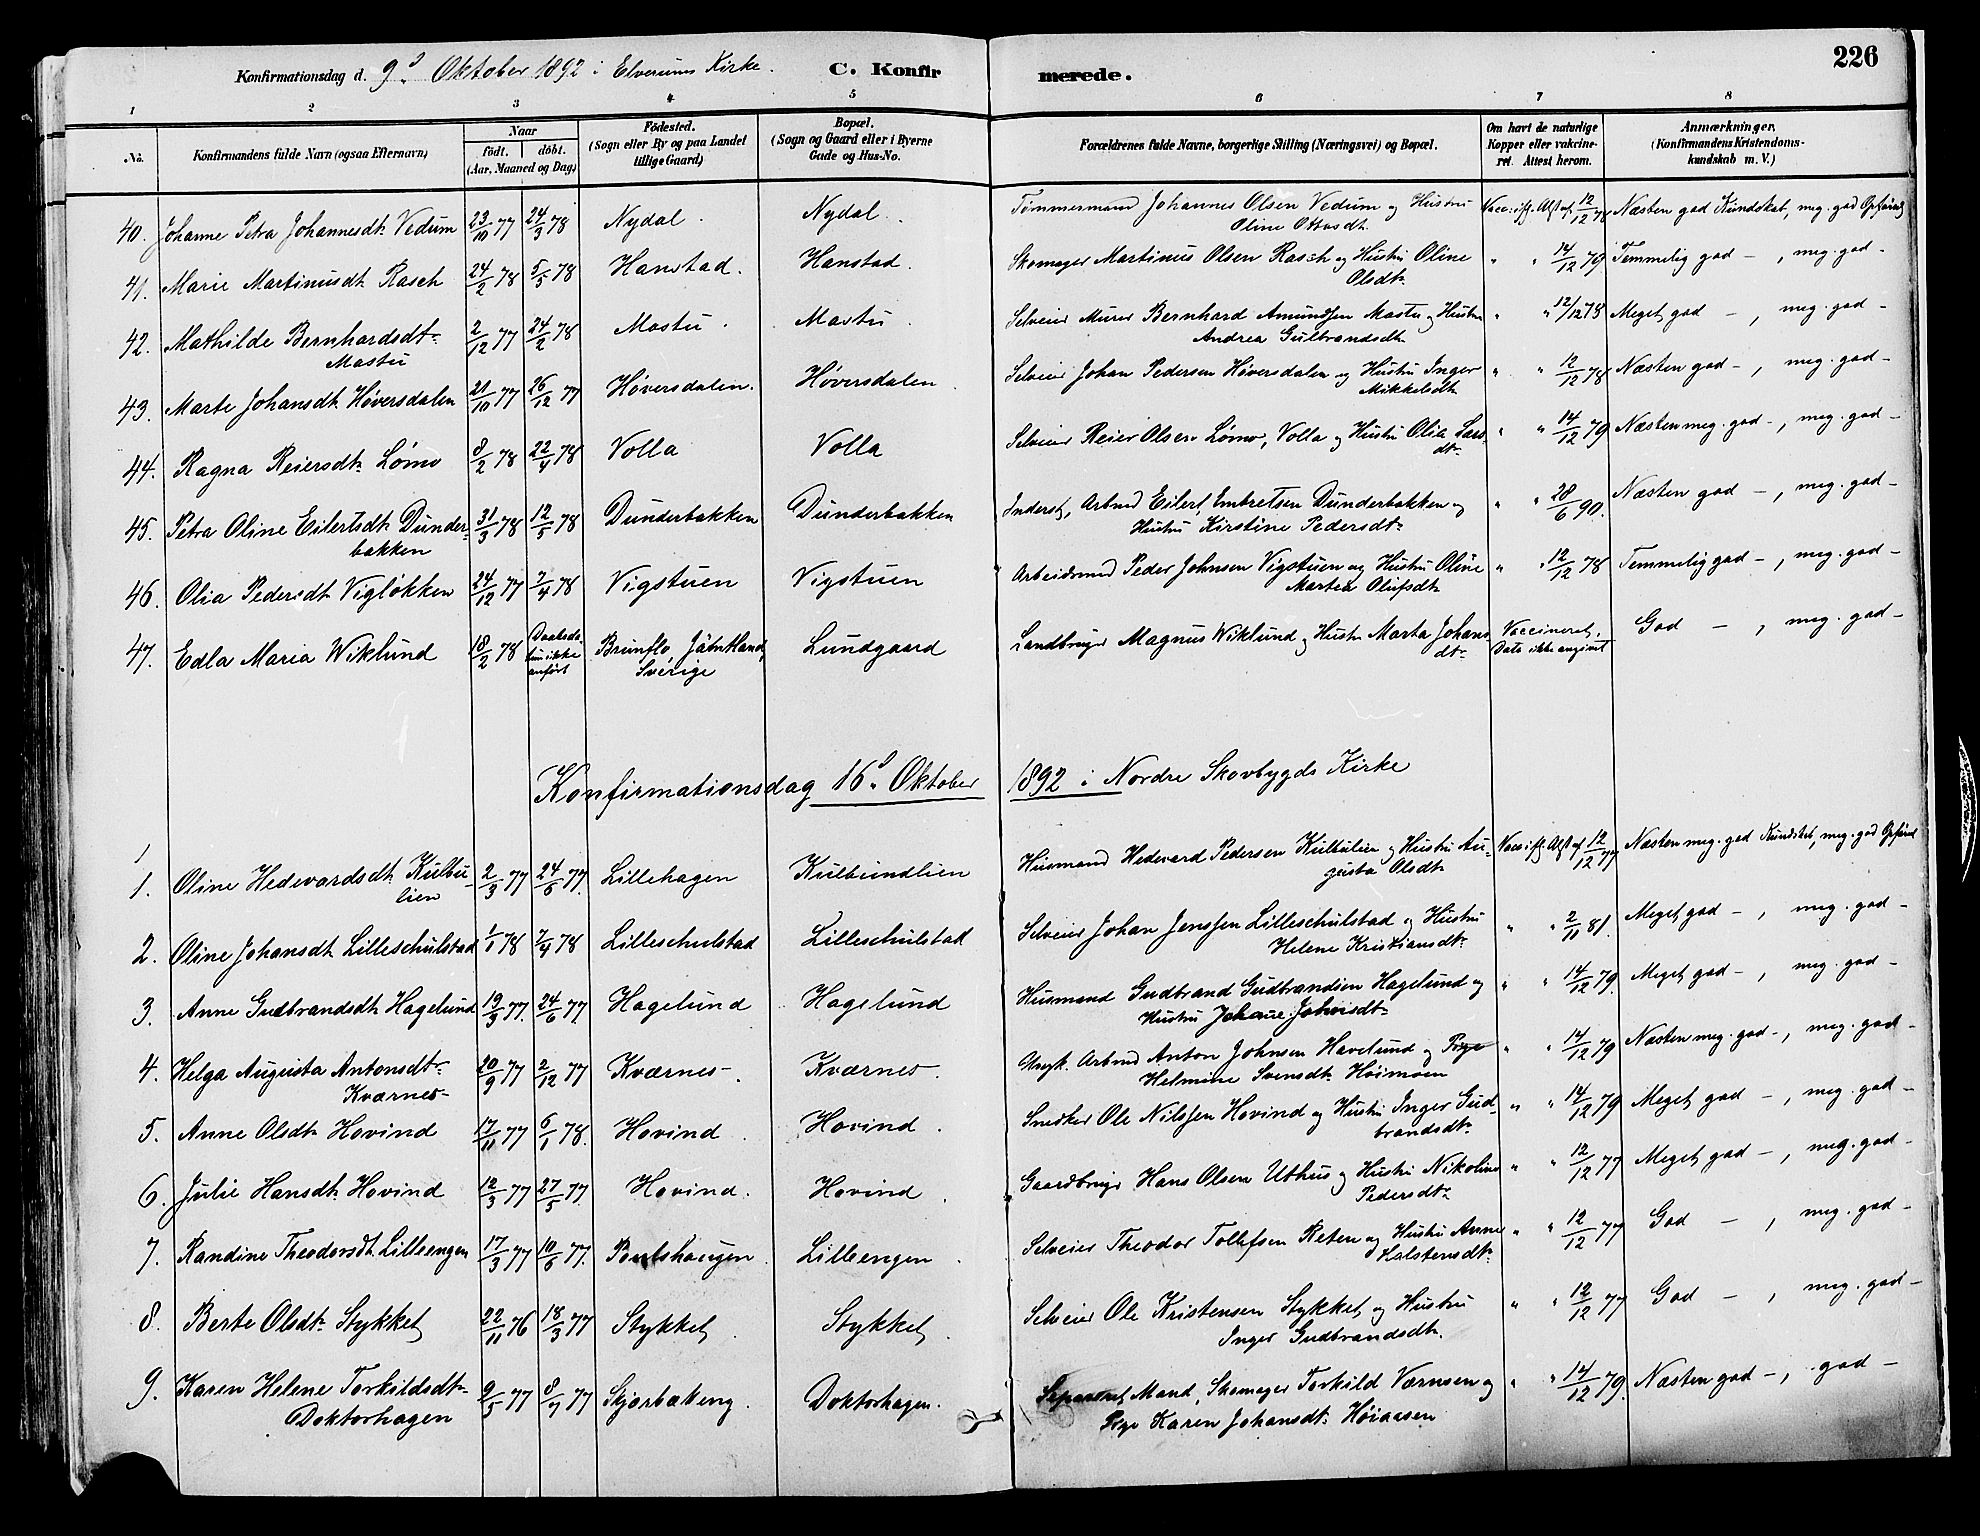 226
Konfirmationsdag d. 9d Oktober 1892 i Elverums Kirke. C. Konfirmerede.
1 2 3 4 5 6 7 8
No. Konfirmandens fulde Navn (ogsaa Efternavn) Naar födt. döbt. (Aar, Maaned og Dag) Födested. (Sogn eller By og paa Landet tillige Gaard) Bopæl. (Sogn og Gaard eller i Byerne Gade og Hus-No. Forældrenes fulde Navne, borgerlige Stilling (Næringsvei) og Bopæl. Om havt de naturlige Kopper eller vakcineret. Attest herom. Anmærkninger. (Konfirmandens Kristendomskundskab m. V.)
40. Johanne Petra Johannesdt. Vedum 23/10 77 24/3 78 Nydal. Nydal. Tømmermand Johannes Olsen Vedum og Hustru Oline Ottosdt. Vacc. ifl. Atst af 12/12 78 Næsten god Kundskab, meg. god Opførsel
41. Marie Martinusdt. Rasch 24/2 78 5/5 78 Hanstad. Hanstad. Skomager Martinus Olsen Rasch og Hustru Oline Olsdt. " " 14/12 79 Temmelig god –, meg. god –
42. Mathilde Bernhardsdt. Mastu 2/12 77 24/2 78 Mastu. Mastu. Selveier Murer Bernhard Amundsen Mastu og Hustru Andrea Gulbrandsdt. " " 12/12 78 Meget god –, meg. god –
43. Marte Johansdt. Høversdalen 21/10 77 26/12 77 Høversdalen. Høversdalen. Selveier Johan Pedersen Høversdalen og Hustru Inger Mikkelsdt. " " 12/12 78 Næsten god –, meg. god –
44. Ragna Reiersdt. Lømo 8/2 78 22/4 78 Volla Volla Selveier Reier Olsen Lømo, Volla og Hustru Olia Larsdt. " " 14/12 79 Næsten meg. god –, meg. god –
45. Petra Oline Eilertsdt. Dunderbakken 31/3 78 12/5 78 Dunderbakken Dunderbakken Inderst, Arbmd Eilert Embretsen Dunderbakken og Hustru Kirstine Pedersdt. " " 28/6 90. Næsten god –, meg. god –
46. Olia Pedersdt. Vigløkken 24/12 77 7/4 78 Vigstuen Vigstuen Arbeidsmd Peder Johnsen Vigstuen og Hustru Oline Martea Olufsdt. " " 12/12 78 Temmelig god –, meg. god –
47. Edla Maria Wiklund 18/2 78 Daabsdatum ikke anført Brunflo, Jämtland, Sverige Lundgaard Landbruger Magnus Wiklund og Hustr. Marta Johansdt. Vaccineret. Dato ikke angivet God –, meg. god –
Konfirmationsdag 16d Oktober 1892 i Nordre Skovbygds Kirke
1. Oline Hedevardsdt. Kulbulien 2/3 77 24/6 77. Lillehagen Kulbundlien Husmand Hedevard Pedersen Kulbulien og Hustru Augusta Olsdt. Vacc. ifl. Atst af 12/12 77 Næsten meg. god Kundskab, meg. god Opførsel
2. Oline Johansdt. Lilleschulstad 1/1 78 7/4 78 Lilleschulstad Lilleschulstad Selveier Johan Jenssen Lilleschulstad og Hustru Helene Kristiansdt. " " 2/11 81. Meget god –, meg. god –
3. Anne Gudbrandsdt. Hagelund 19/3 77. 24/6 77. Hagelund Hagelund Husmand Gudbrand Gudbrandsen Hagelund og Hustru Johanne Johnsdt. " " 14/12 79. Meget god –, meg. god –
4. Helga Augusta Antonsdt. Kværnes 20/9 77 2/12 77 Kværnes. Kværnes. Ungk. Arbmd Anton Johnsen Havelund og Pige Helmine Svensdt. Høimoen " " 14/12 79 Næsten meg. god –, meg. god –
5. Anne Olsdt. Hovind 17/11 77 6/1 78. Hovind. Hovind. Snedker Ole Nilssen Hovind og Hustru Inger Gudbrandsdt. " " 14/12 79 Meget god –, meg. god –
6. Julie Hansdt. Hovind 12/3 77 27/5 77. Hovind. Hovind. Gaardbruger Hans Olsen Uthus og Hustru Nikoline Pedersdt. " " 12/12 77 Meget god –, meg. god –
7. Randine Theodorsdt. Lilleengen 17/3 77 10/6 77. Poulshaugen. Lilleengen. Selveier Theodor Tollefsen Reten og Hustru Anne Halstensdt. " " 12/12 77 God –, meg. god –
8. Berte Olsdt. Stykket 22/11 76 18/3 77 Stykket. Stykket. Selveier Ole Kristensen Stykket og Hustru Inger Gudbrandsdt. " " 12/12 77 God –, meg. god –
9. Karen Helene Torkildsdt. Doktorhagen 9/5 77 8/7 77 Skjærbækeng. Doktorhagen. Separeret Mand, Skomager Torkild Værnsen og Pige Karen Johansdt. Høiaasen " " 14/12 79. Næsten god –, god –